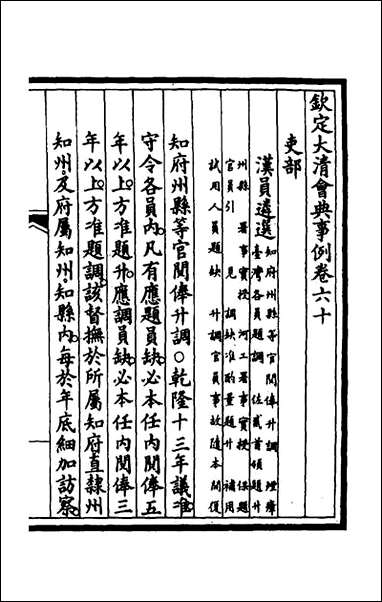 欽定大清會典事例卷六十
吏部
漢員遴選 知府州縣等官閒俸升調 煙瘴
臺灣各員題調 佐貳首領題升
州縣署事實授 河工署事實授 保題
官員引見 調缺准酌量題升 補用
試用人員題缺 升調官員事故隨本開復
知府州縣等官閒俸升調○乾隆十三年議准
守令各員內凡有應題員缺必本任內閒俸五
年以上方准題升應調員缺必本任內閒俸三
年以上方准題調該督撫於所屬知府直隸州
知州及府屬知州知縣內每於年底細加訪察